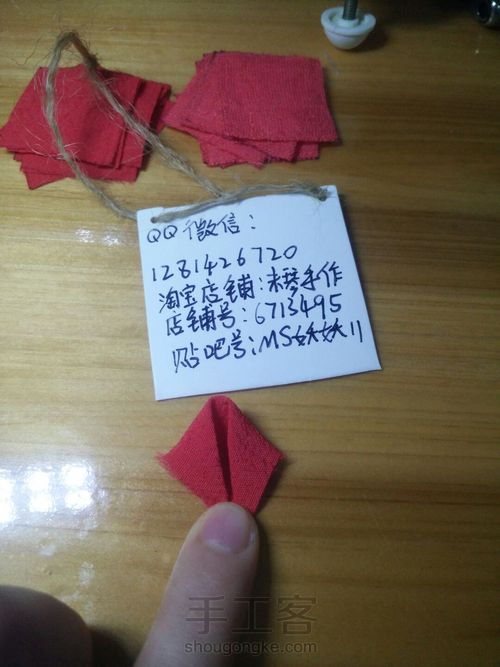 QQ微信：
1281426720
淘宝店铺：末琴手作
店铺号：6713495
贴吧号：MS妖妖11
手工客
shougongke.com